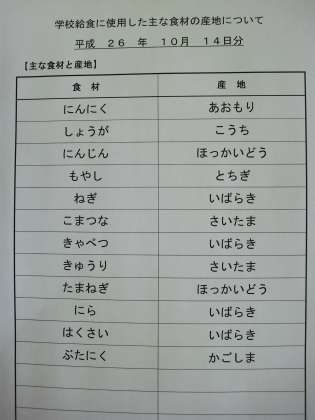 学校給食に使用した主な食材の産地について
平成 26 年 10月 14日分
【主な食材と産地】
食 材 産 地
にんにく あおもり
しょうが こうち
にんじん ほっかいどう
もやし とちぎ
ねぎ いばらき
こまつな さいたま
きゃべつ いばらき
きゅうり さいたま
たまねぎ ほっかいどう
にら いばらき
はくさい いばらき
ぶたにく かごしま